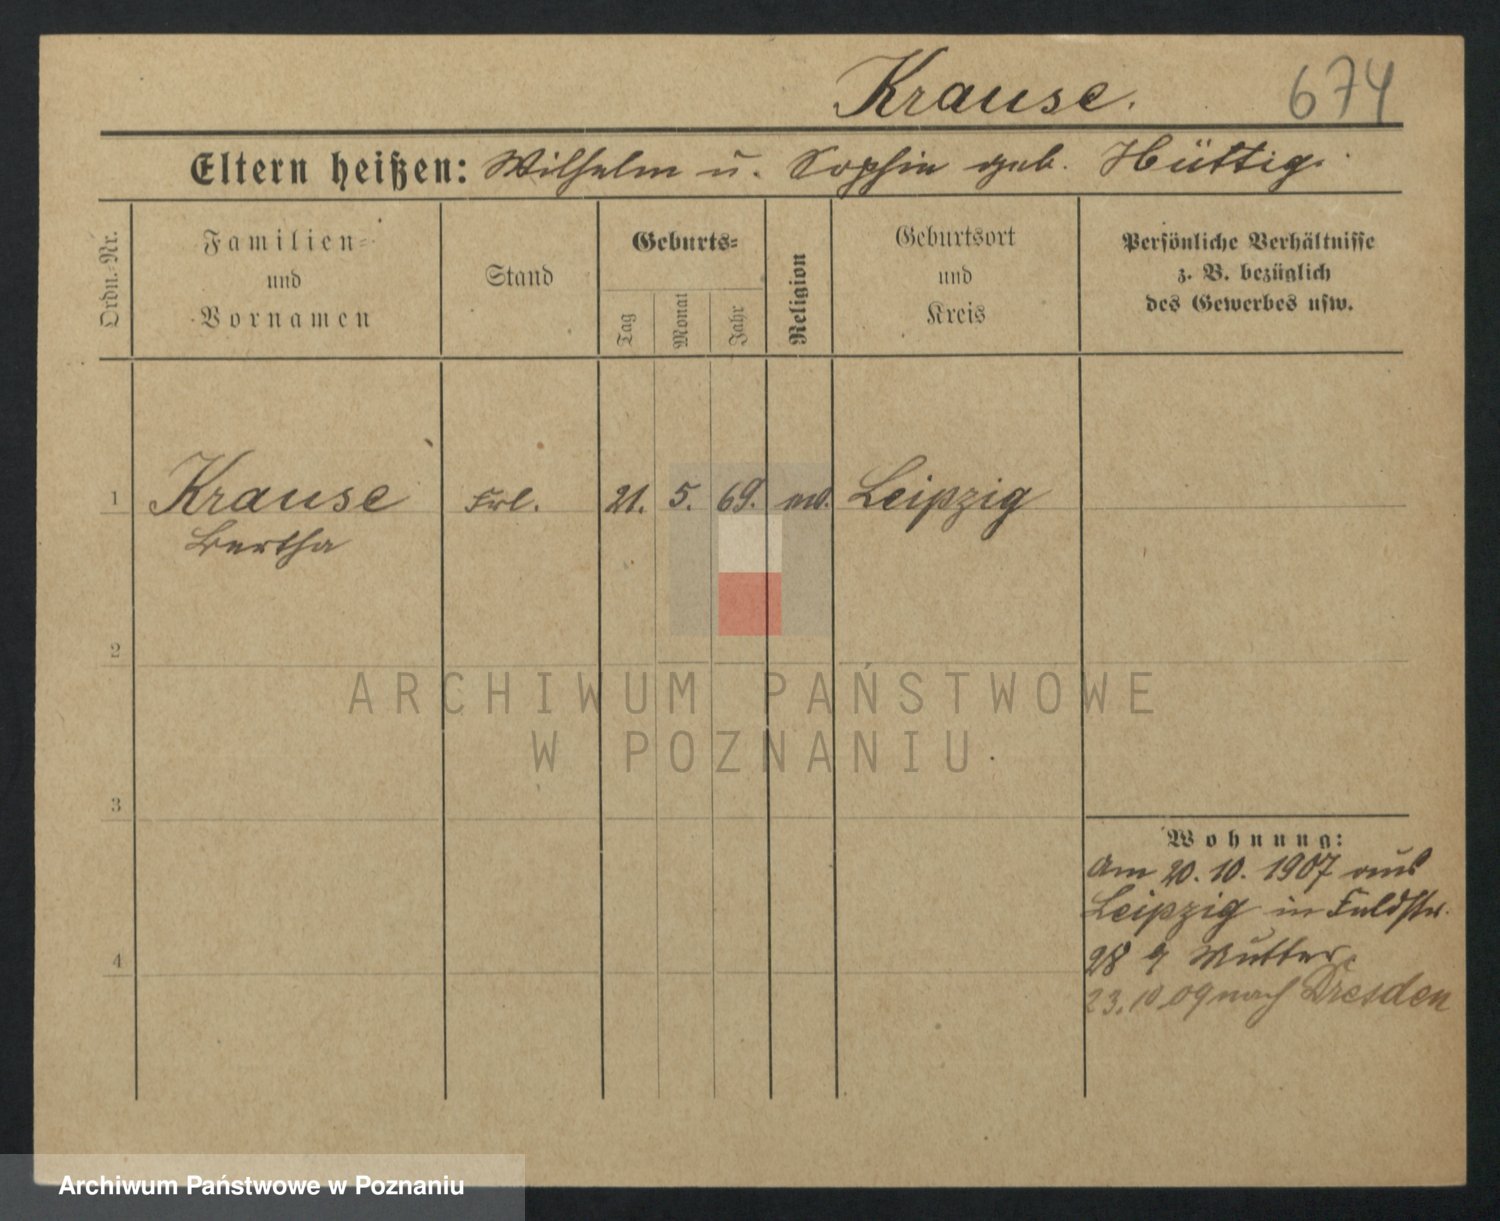 Krause. 674
Eltern heißen: Wilhelm u. Sophie geb. Hüttig.
Ordn.-Nr.
Familien-
und
Vornamen
Stand
Geburts-
Tag
Monat
Jahr
Religion
Geburtsort
und
Kreis
Persönliche Verhältnisse
z. B. bezüglich
des Gewerbes usw.
1 Krause Frl. 21. 5. 69. Leipzig
Bertha
2
3
4
Wohnung:
Am 20. 10. 1907 aus
Leipzig in Feldstr.
28 Mutter
23.10.09 nach Dresden
ARCHIWUM PAŃSTWOWE
W POZNANIU
Archiwum Państwowe w Poznaniu